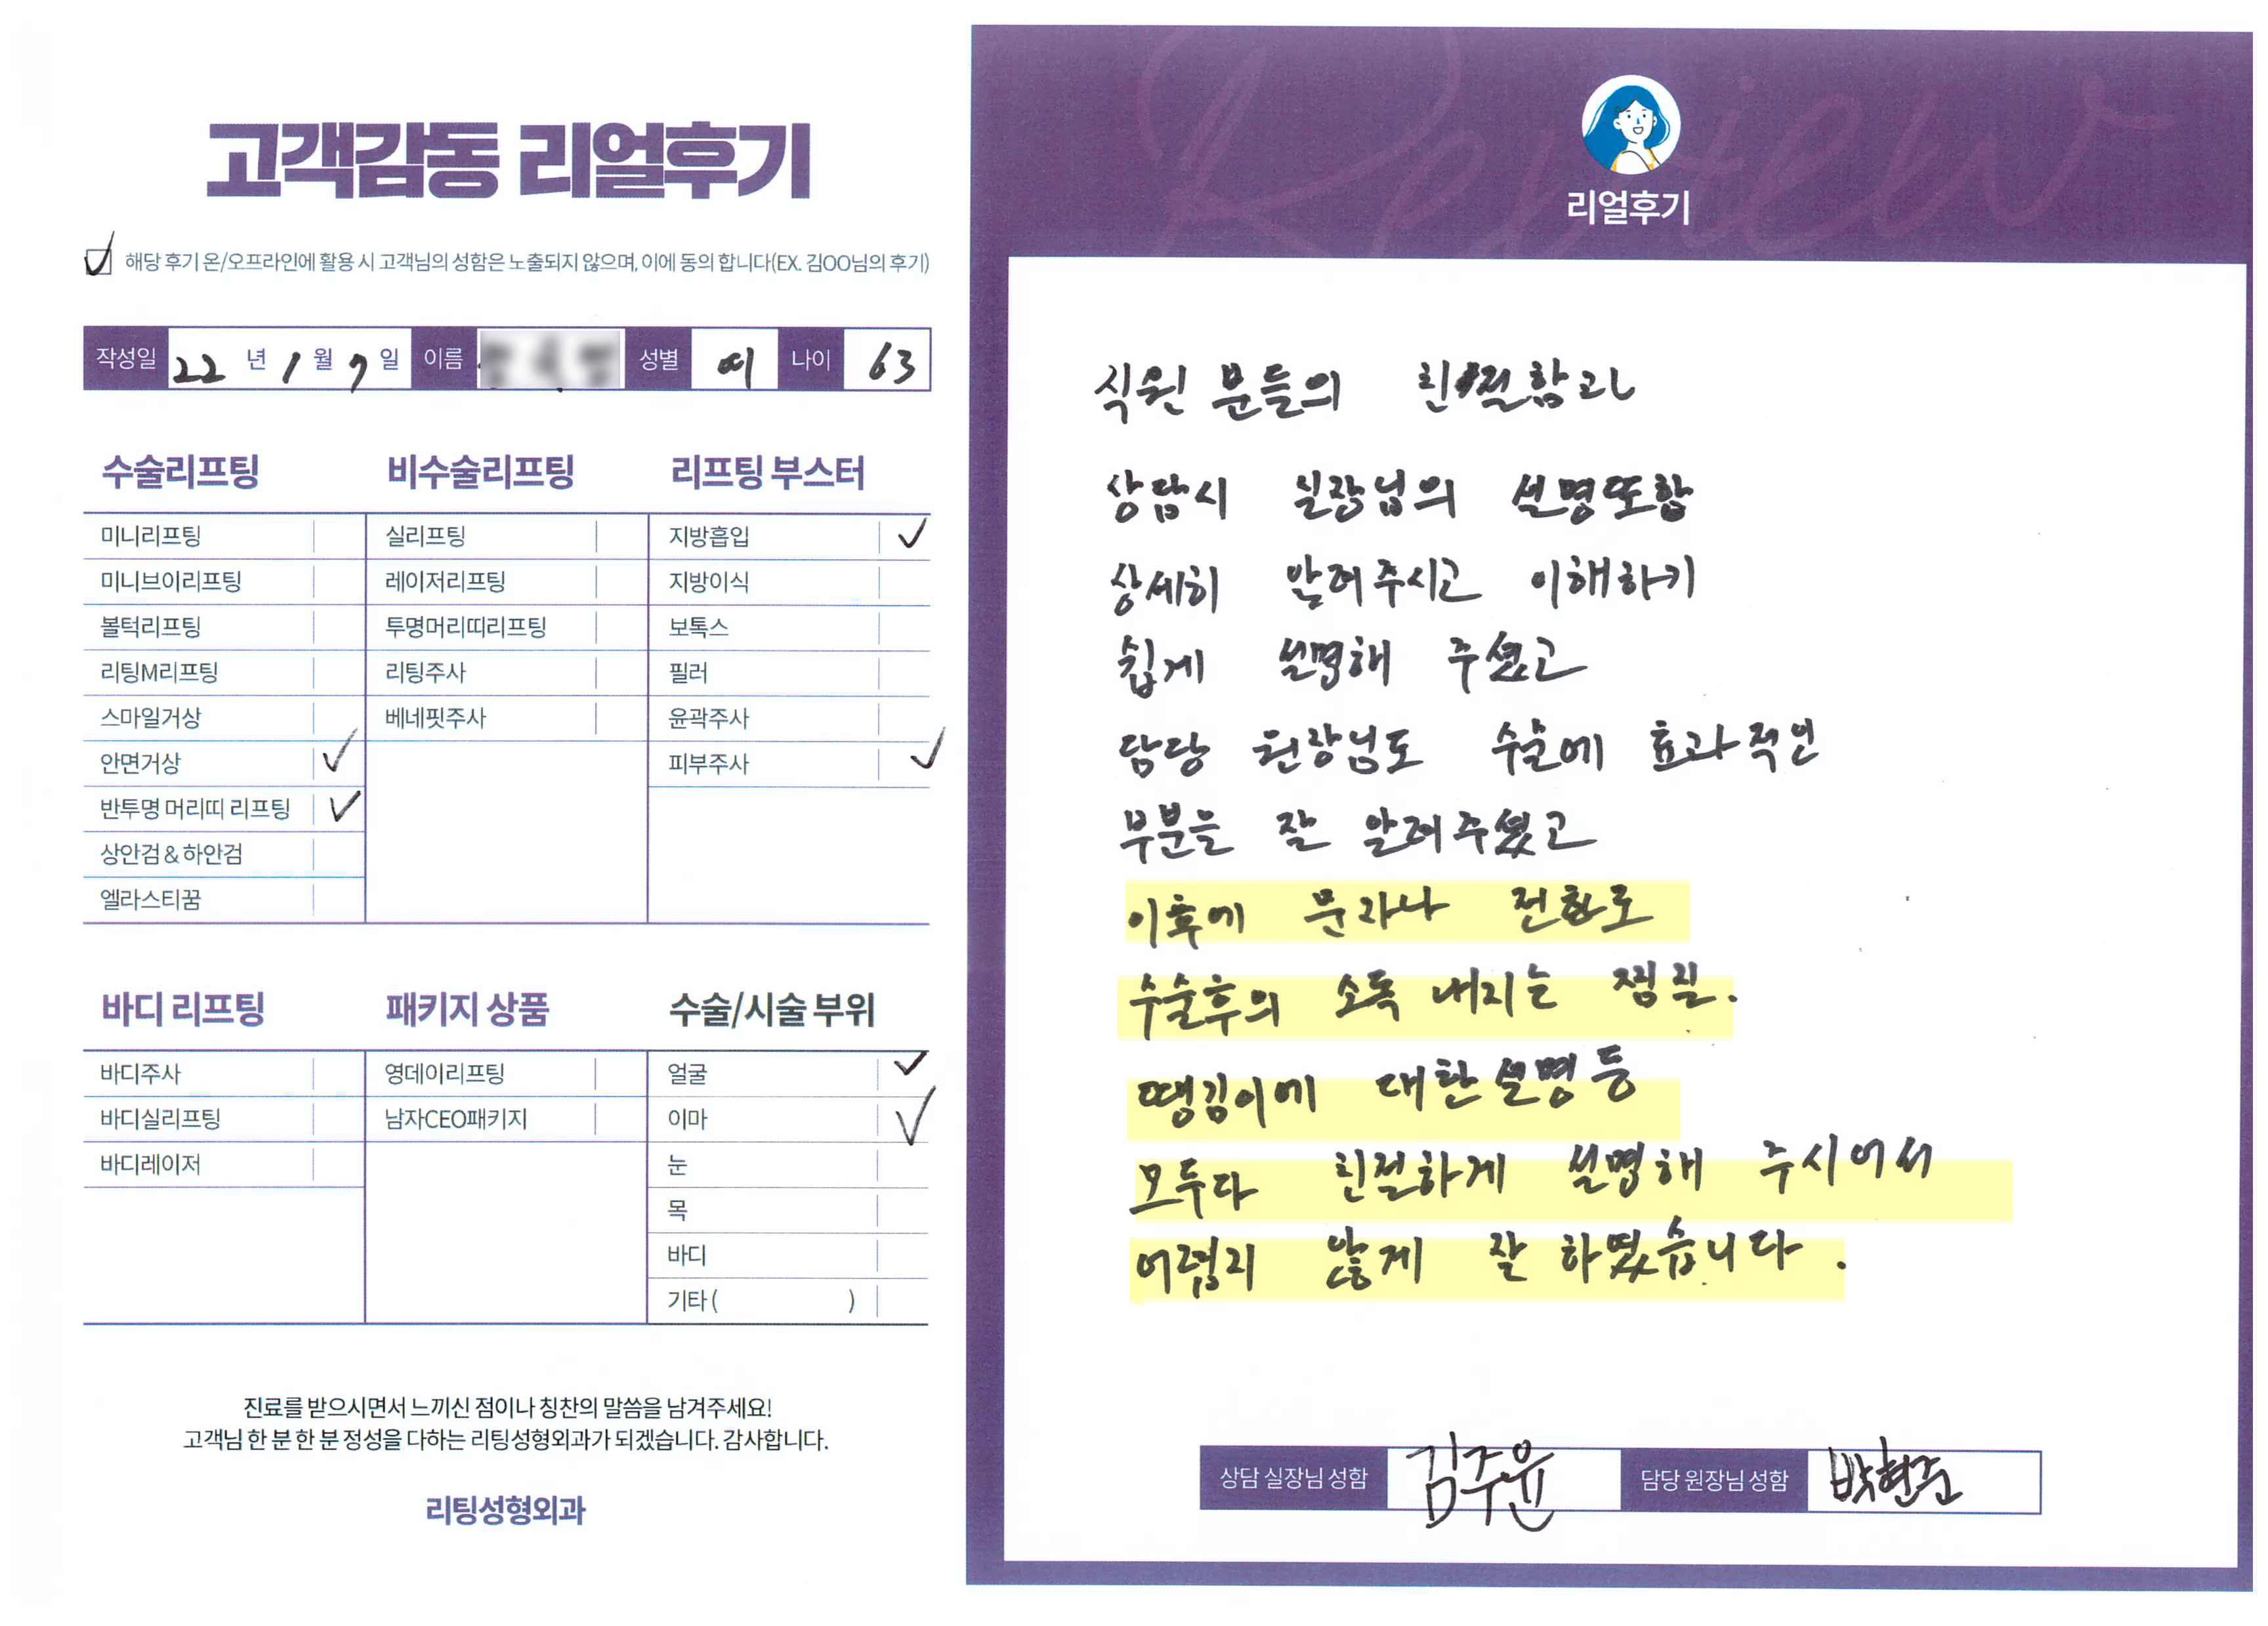 고객감동 리얼후기
해당 후기 온/오프라인에 활용 시 고객님의 성함은 노출되지 않으며, 이에 동의 합니다(EX. 김OO님의 후기)
작성일 22 년 1 월 7 일 이름 성별 여 나이 63
수술리프팅
미니리프팅
미니브이리프팅
볼턱리프팅
리팅M리프팅
스마일거상
안면거상
반투명 머리띠 리프팅
상안검 & 하안검
엘라스티꿈
비수술리프팅
실리프팅
레이저리프팅
투명머리띠리프팅
리팅주사
베네핏주사
리프팅 부스터
지방흡입
지방이식
보톡스
필러
윤곽주사
피부주사
바디 리프팅
바디주사
바디실리프팅
바디레이저
패키지 상품
영데이리프팅
남자CEO패키지
수술/시술 부위
얼굴
이마
눈
목
바디
기타 ( )
진료를 받으시면서 느끼신 점이나 칭찬의 말씀을 남겨주세요!
고객님 한 분 한 분 정성을 다하는 리팅성형외과가 되겠습니다. 감사합니다.
리팅성형외과
Review
리얼후기
직원 분들의 친절함과
상담시 실장님의 설명또한
상세히 알려주시고 이해하기
쉽게 설명해 주셨고
담당 원장님도 수술에 효과적인
부분을 잘 알려주셨고
이후에 문자나 전화로
수술후의 소독 내지는 찜질.
땡김이에 대한 설명 등
모두다 친절하게 설명해 주시어서
어렵지 않게 잘 하였습니다.
상담 실장님 성함 김주윤 담당 원장님 성함 박현준